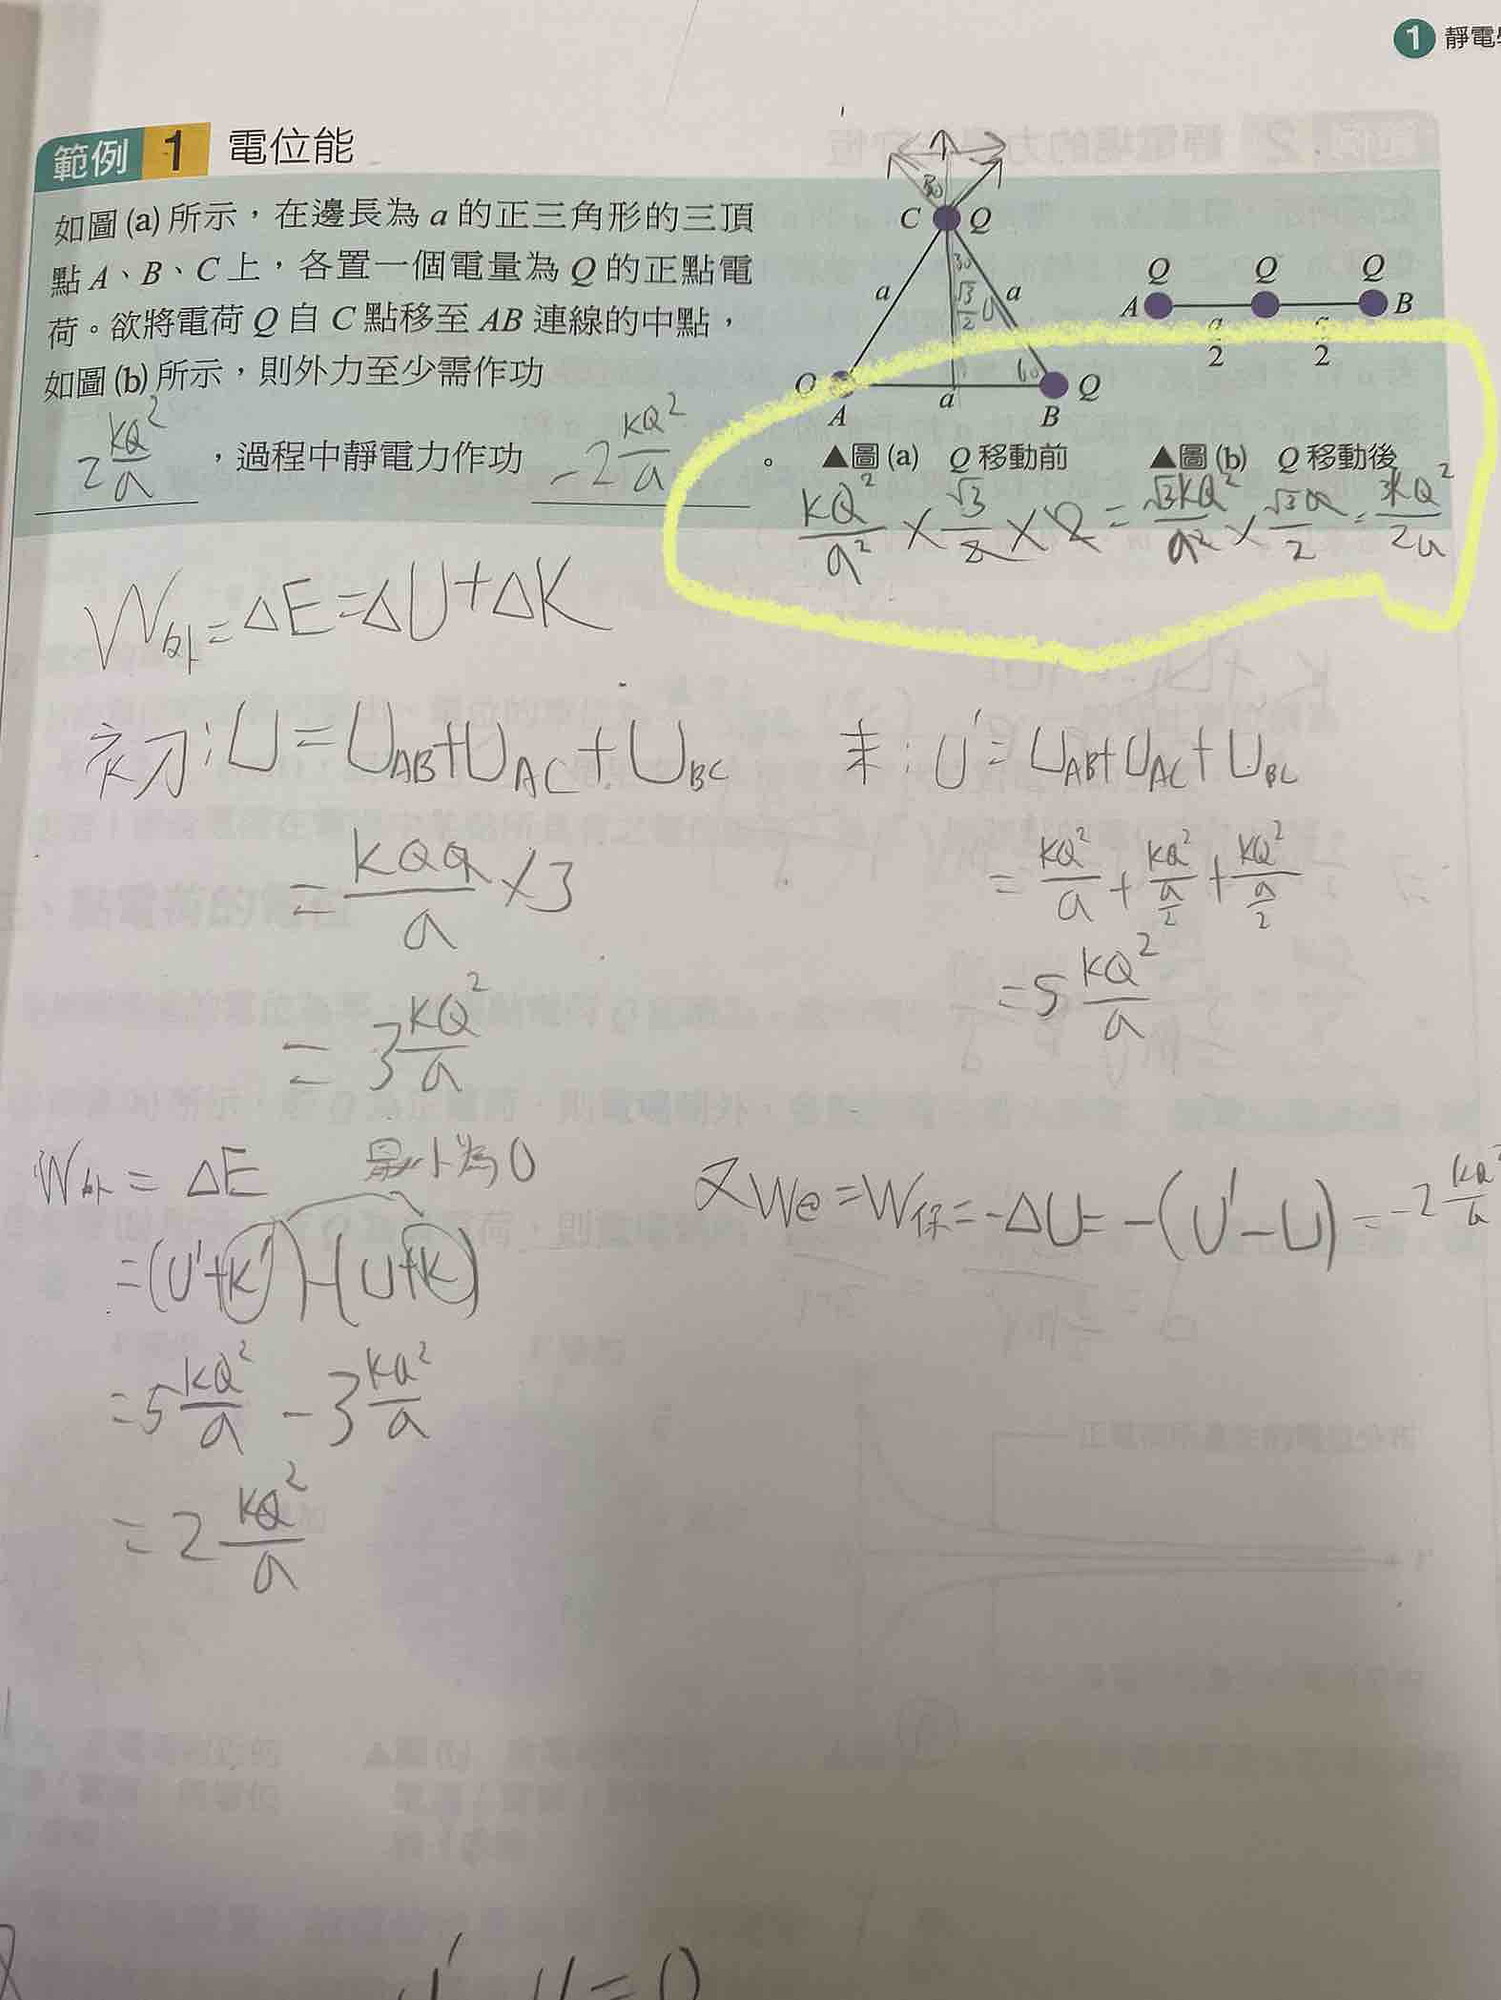 1 靜電學
範例 1 電位能
如圖(a)所示，在邊長為 a 的正三角形的三頂
點 A、B、C 上，各置一個電量為 Q 的正點電
荷。欲將電荷 Q 自 C 點移至 AB 連線的中點，
如圖(b)所示，則外力至少需作功
2 kQ²/a ，過程中靜電力作功 -2 kQ²/a 。
C Q
30
√3/2 a
a a
60
Q A a B Q
▲圖(a) Q 移動前
Q Q Q
A B
a/2 a/2
▲圖(b) Q 移動後
kQ²/a² × √3/2 × 2 = √3kQ²/a² × √3a/2 = 3kQ²/2a
W外 = ΔE = ΔU + ΔK
初: U = U_AB + U_AC + U_BC
= kQQ/a × 3
= 3 kQ²/a
末: U' = U_AB + U_AC + U_BC
= kQ²/a + kQ²/(a/2) + kQ²/(a/2)
= 5 kQ²/a
W外 = ΔE 最小為0
= (U'+K') - (U+K)
= 5 kQ²/a - 3 kQ²/a
= 2 kQ²/a
又We = W保 = -ΔU = -(U'-U) = -2 kQ²/a